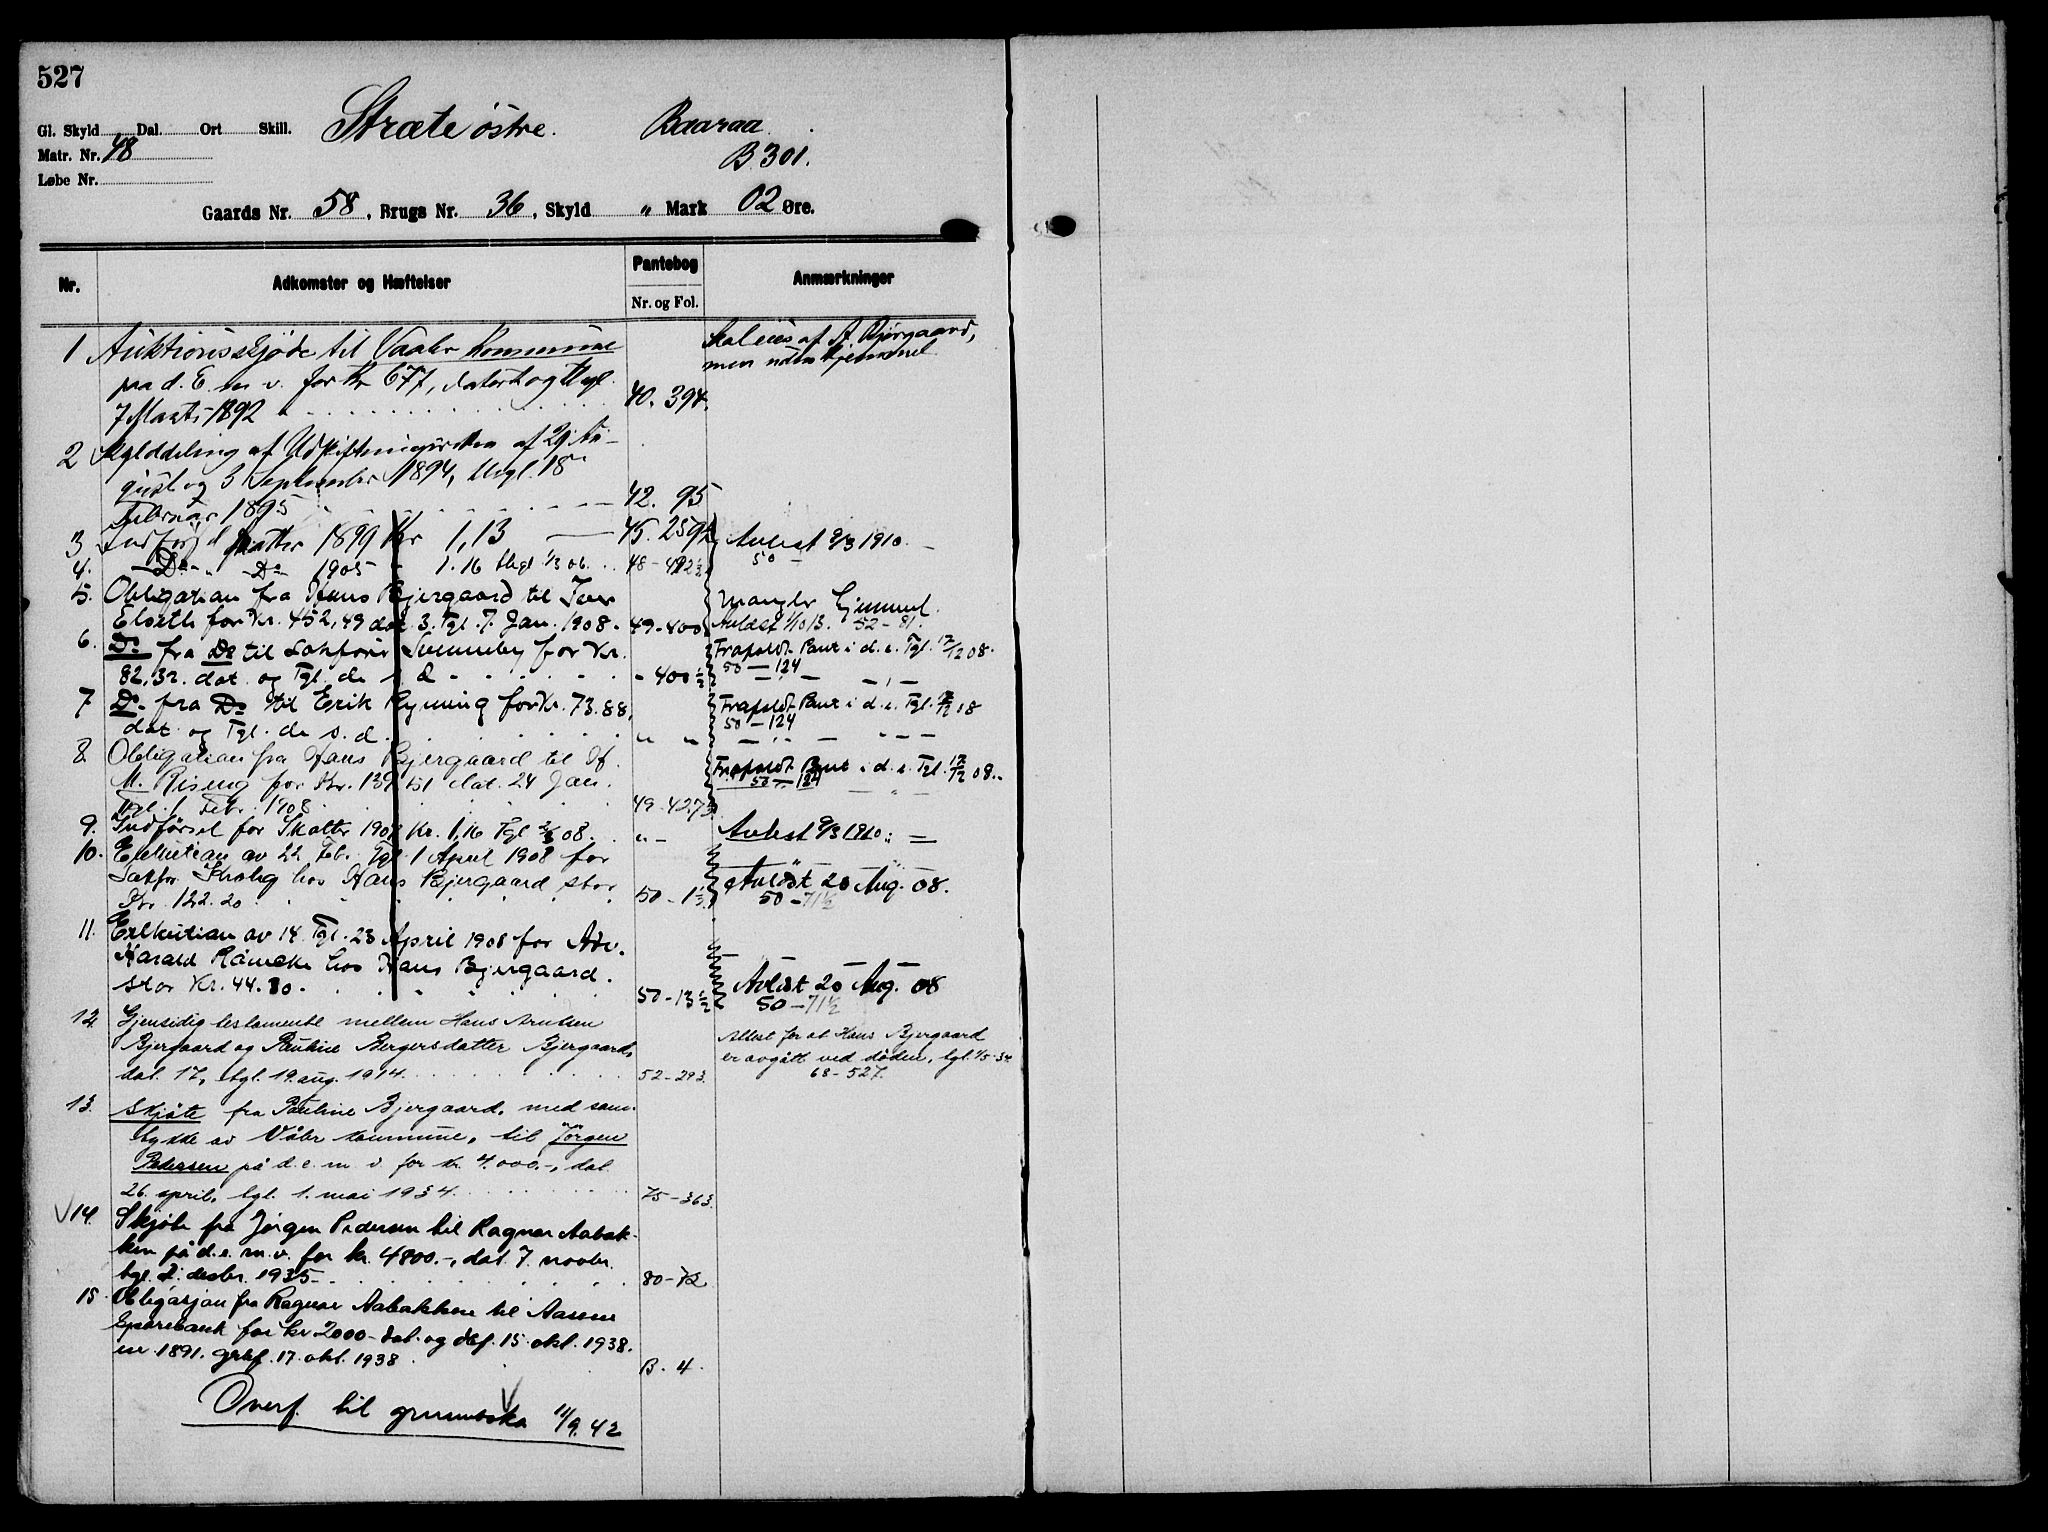 527
Gl. Skyld Dal. Ort Skill. Stræte østre. Baaraa
Matr. Nr. 48 B 301.
Løbe Nr.
Gaards Nr. 58, Brugs Nr. 36, Skyld " Mark 02 Øre.
Nr. Adkomster og Hæftelser Pantebog Anmærkninger
Nr. og Fol.
1 Auktionsskjøde til Vaaler Kommune Skal eies af Bjørgaard,
paa d. E. m v. for Kr 677, datert og thgl. men uden hjemmel.
7 Marts 1892 40. 394.
2 Skylddeling af Udskiftningsretten af 29 Au-
gust og 3 September 1894, thgl. 18
Februar 1895 42. 95
3 Indførsel Skatter 1899 Kr 1,13 45. 259 Avlest 9/3 1910.
4. Do " Do 1905 " 1.16 thgl 1/3 06. 48-492½ 50 -
5. Obligation fra Hans Bjergaard til Iver Mangler Hjemmel.
Elseth for Kr. 452,49 dat 3. Tgl. 7. Jan. 1908. 49-400 Avlæst 1/10 13. 52-81.
6. Do fra Do til Sakfører Svenneby for Kr. Frafaldt Pant i d. e. Tgl. 17/12 08.
82,32. dat. og Tgl. de s. d. " 400½ 50-124
7 Do fra Do til Erik Ryning for Kr. 73.88, Frafaldt Pant i d. e. Tgl. 17/12 08
dat. og Tgl. de s. d. " " 50-124
8 Obligation fra Hans Bjergaard til H.
M. Riseng for Kr. 139,51 dat. 24 Jan. Frafaldt Pant i d. e. Tgl. 17/12 08.
Tgl. 1 Febr. 1908. 49-427 50-124
9. Indførsel for Skatter 1907 Kr. 1,16 Tgl 08. " - Avlest 9/3 1910.
10. Exekution av 22 Feb. Tgl. 1 April 1908 for
Sakfør. hos Hans Bjergaard stor Avlæst 20 Aug. 08.
Kr. 122.20. 50-1½ 50-71½
11. Exekution av 14 Tgl. 23 April 1908 for Adv.
Harald Råmcke hos Hans Bjergaard.
stor Kr. 44.80. 50-13½ Avlæst 20 Aug. 08
50-71½
12. Gjensidig testamente mellem Hans Arntsen Attest for at Hans Bjergaard
Bjergaard og Pauline Bergersdatter Bjergaard, er avgått ved døden, tgl. 1/5-34
dat. 17, tgl. 19. aug. 1914. 52-293. 68-527.
13. Skjøte fra Pauline Bjergaard, med sam-
tykke av Våler kommune, til Jørgen
Pedersen på d. e. m. v. for kr. 4.000.-, dat.
26. april, tgl. 1. mai 1934. 75-363.
14. Skjøte fra Jørgen Pedersen til Ragnar Aabak-
ken på d. e. m. v. for kr. 4800.-, dat. 7. novbr.
tgl. 2. desbr. 1935. 80-72
15. Obligasjon fra Ragnar Aabakken til Aasnes
Sparebank for kr 2000- dat. og dbf. 15. okt. 1938.
nr. 1891. 17. okt. 1938. B. 4.
Overf. til grunnboka 11/9.42